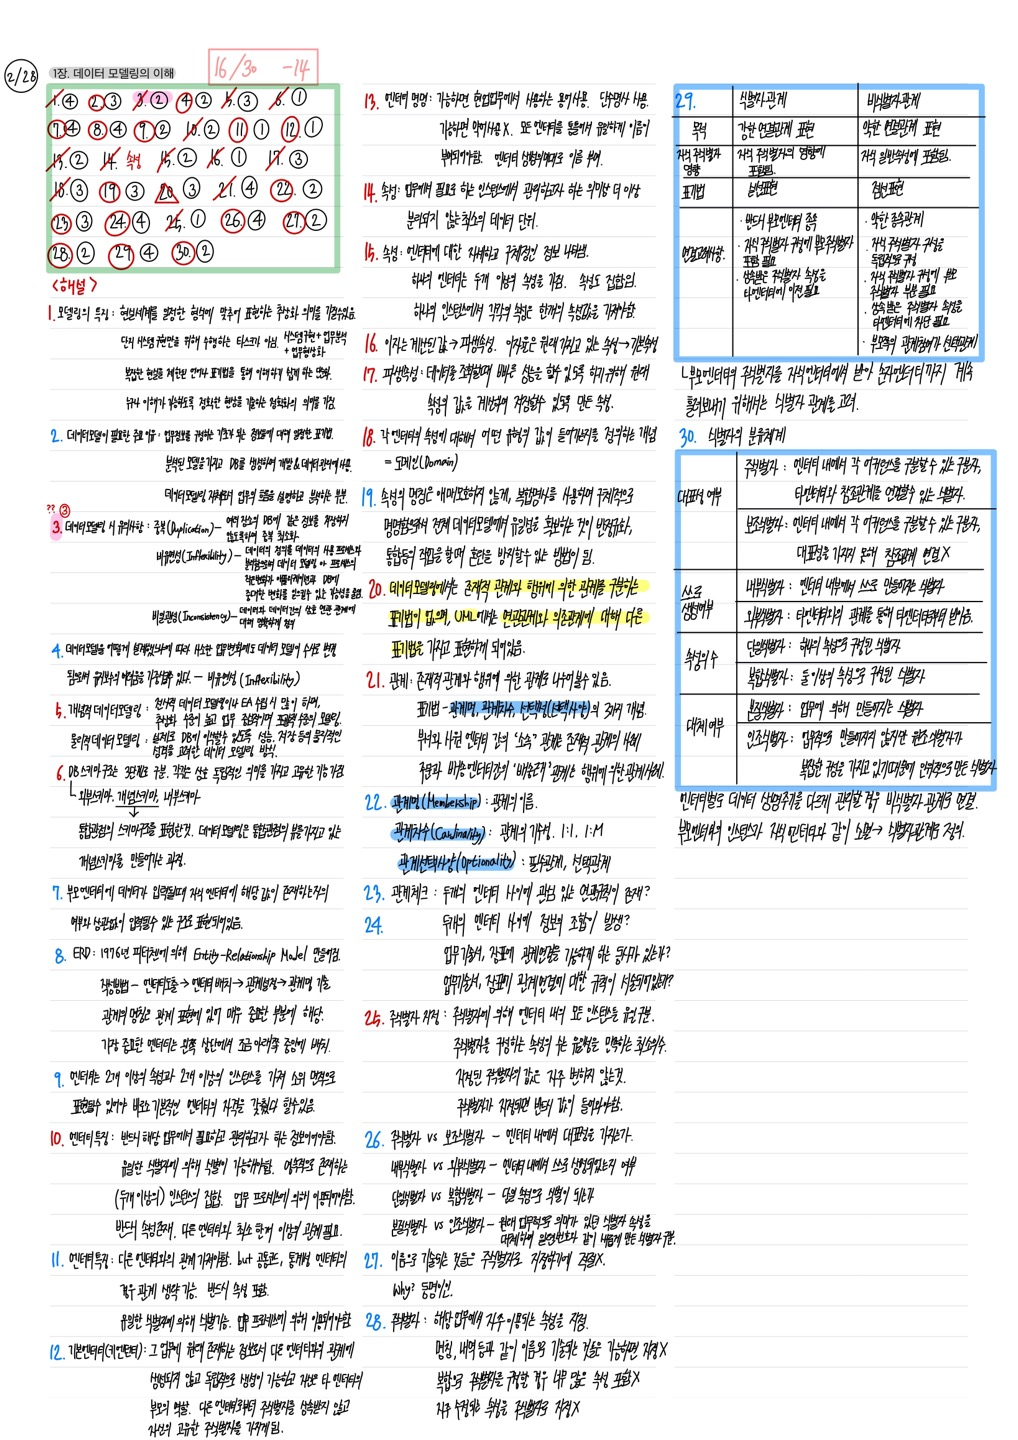 2/28
1장. 데이터 모델링의 이해
16/30 -14
1. ④ 2. ③ 3. ② 4. ② 5. ③ 6. ①
7. ④ 8. ④ 9. ② 10. ② 11. ① 12. ①
13. ② 14. 속성 15. ② 16. ① 17. ③
18. ③ 19. ③ 20. ③ 21. ④ 22. ②
23. ③ 24. ④ 25. ① 26. ④ 27. ②
28. ② 29. ④ 30. ②
<해설>
1. 모델링의 특징 : 현실세계를 일정한 형식에 맞추어 표현하는 추상화 의미를 가질수있음
단지 시스템 구현만을 위해 수행하는 타스크가 아님. 시스템구현 + 업무분석
+ 업무형상화
복잡한 현실을 제한된 언어나 표기법을 통해 이해하기 쉽게 하는 단순화.
누구나 이해가 가능하도록 정확한 현상을 기술하는 정확화의 의미를 가짐.
2. 데이터모델이 필요한 중요이유 : 업무정보를 구성하는 기초가 되는 정보들에 대해 일정한 표기법.
분석된 모델을 가지고 DB를 생성하여 개발 & 데이터관리에 사용.
데이터모델링 자체로서 업무의 흐름을 설명하고 분석하는 부분.
?? ③
3. 데이터모델링 시 유의사항 : 중복(Duplication) – 여러 장소의 DB에 같은 정보를 저장하지
않도록하여 중복 최소화.
비유연성(Inflexibility) – 데이터의 정의를 데이터의 사용 프로세스와
분리함으로써 데이터 모델링은 데이터 or 프로세스의
작은변화가 어플리케이션과 DB에
중대한 변화를 일으킬수 있는 가능성을 줄임.
비일관성(Inconsistency) – 데이터와 데이터간의 상호 연관 관계에
대해 명확하게 정의
4. 데이터모델을 어떻게 설계했느냐에 따라 사소한 업무변화에도 데이터 모델이 수시로 변경
됨으로써 유지보수의 어려움을 가중할수 있다. – 비유연성 (Inflexibility)
5. 개념적 데이터모델링 : 전사적 데이터 모델링이나 EA 수립시 많이 하며,
추상화 수준이 높고 업무 중심적이며 포괄적 수준의 모델링.
물리적데이터 모델링 : 실제로 DB에 이식할수 있도록 성능, 저장 등의 물리적인
성격을 고려한 데이터 모델링 방식.
6. DB스키마구조는 3단계로 구분. 각각은 상호 독립적인 의미를 가지고 고유한 기능 가짐
↳ 외부스키마, 개념스키마, 내부스키마
통합관점의 스키마구조를 표현한것. 데이터모델은 통합관점의 뷰를 가지고 있는
개념스키마를 만들어가는 과정.
7. 부모엔터티에 데이터가 입력될때 자식 엔터티에 해당 값이 존재하는지의
여부와 상관없이 입력될수 있는 구조로 표현되어있음.
8. ERD : 1976년 피터첸에 의해 Entity-Relationship Model 만들어짐.
작성방법 – 엔터티도출 → 엔터티 배치 → 관계설정 → 관계명 기술
관계의 명칭은 관계 표현에 있어 매우 중요한 부분에 해당.
가장 중요한 엔터티는 왼쪽 상단에서 조금 아래쪽 중앙에 배치.
9. 엔터티는 2개 이상의 속성과 2개 이상의 인스턴스를 가져 소의 면적으로
표현될수 있어야 비로소 기본적인 엔터티의 자격을 갖췄다 할수있음
10. 엔터티 특징 : 반드시 해당 업무에서 필요하고 관리하고자 하는 정보이어야함.
유일한 식별자에 의해 식별이 가능해야됨. 영속적으로 존재하는
(두개 이상의) 인스턴스의 집합. 업무 프로세스에 의해 이용되어야함.
반드시 속성존재. 다른 엔터티와 최소 한개 이상의 관계 필요.
11. 엔터티특징 : 다른 엔터티와의 관계 가져야함. but 공통코드, 통계성 엔터티의
경우 관계 생략 가능. 반드시 속성 포함.
유일한 식별자에 의해 식별가능. 업무 프로세스에 의해 이용되어야함
12. 기본엔터티(키엔터티) : 그 업무에 원래 존재하는 정보로서 다른 엔터티와의 관계에
생성되지 않고 독립적으로 생성이 가능하고 자신은 타 엔터티의
부모의 역할. 다른 엔터티로부터 주식별자를 상속받지 않고
자신의 고유한 주식별자를 가지게 됨.
13. 엔터티 명명 : 가능하면 현업업무에서 사용하는 용어사용. 단수명사 사용.
가능하면 약어사용 X. 모든 엔터티를 통틀어서 유일하게 이름이
부여되어야함. 엔터티 생성의미대로 이름 부여.
14. 속성 : 업무에서 필요로 하는 인스턴스에서 관리하고자 하는 의미상 더 이상
분리되지 않는 최소의 데이터 단위.
15. 속성 : 엔터티에 대한 자세하고 구체적인 정보 나타냄.
하나의 엔터티는 두개 이상의 속성을 가짐. 속성도 집합임.
하나의 인스턴스에서 각각의 속성은 한개의 속성값을 가져야함
16. 이자는 계산된 값 → 파생속성. 이자율은 원래 가지고 있는 속성 → 기본속성
17. 파생속성 : 데이터를 조회할때 빠른 성능을 할수 있도록 하기위해 원래
속성의 값을 계산하여 저장할수 있도록 만든 속성.
18. 각 엔터티의 속성에 대해서 어떤 유형의 값이 들어가는지를 정의하는 개념
= 도메인(Domain)
19. 속성의 명칭은 애매모호하지 않게, 복합명사를 사용하여 구체적으로
명명함으로써 전체 데이터모델에서 유일성을 확보하는 것이 반정규화,
통합등의 작업을 할때 혼란을 방지할수 있는 방법이 됨.
20. 데이터모델링에서는 존재적 관계와 행위에 의한 관계를 구분하는
표기법이 없으며, UML에서는 연관관계와 의존관계에 대해 다른
표기법을 가지고 표현하게 되어있음.
21. 관계 : 존재적 관계와 행위에 의한 관계로 나누어질수 있음.
표기법 – 관계명, 관계차수, 선택성(선택사양)의 3가지 개념.
부서와 사원 엔터티 간의 '소속' 관계는 존재적 관계의 사례
주문과 배송엔터티간의 '배송근거'관계는 행위에 의한 관계사례.
22. 관계명(Membership) : 관계의 이름.
관계차수(Cardinality) : 관계의 기수성. 1:1, 1:M
관계선택사양(Optionality) : 필수관계, 선택관계
23. 관계체크 : 두개의 엔터티 사이에 관심 있는 연관규칙이 존재?
24. 두개의 엔터티 사이에 정보의 조합이 발생?
업무기술서, 장표에 관계연결을 가능하게 하는 동사가 있는가?
업무기술서, 장표에 관계연결에 대한 규칙이 서술되어있는가?
25. 주식별자 지정 : 주식별자에 의해 엔터티 내의 모든 인스턴스들 유일 구분.
주식별자를 구성하는 속성의 수는 유일성을 만족하는 최소의수.
지정된 주식별자의 값은 자주 변하지 않는것.
주식별자가 지정되면 반드시 값이 들어와야함.
26. 주식별자 vs 보조식별자 – 엔터티 내에서 대표성을 가지는가.
내부식별자 vs 외부식별자 – 엔터티 내에서 스스로 생성되었는지 여부
단일식별자 vs 복합식별자 – 단일 속성으로 식별이 되는가
본질식별자 vs 인조식별자 – 원래 업무적으로 의미가 있던 식별자 속성을
대체하여 일련번호와 같이 새롭게 만든 식별자 구분.
27. 이름으로 기술되는 것들은 주식별자로 지정하기에 적절X.
Why? 동명이인.
28. 주식별자 : 해당 업무에서 자주 이용되는 속성을 지정.
명칭, 내역 등과 같이 이름으로 기술되는 것들은 가능하면 지정 X
복합으로 주식별자를 구성할 경우 너무 많은 속성 포함 X
자주 수정되는 속성을 주식별자로 지정 X
29. 식별자관계 비식별자관계
목적 강한 연결관계 표현 약한 연결관계 표현
자식 주식별자 영향 자식 주식별자의 구성에 포함됨. 자식 일반속성에 포함됨.
표기법 실선표현 점선표현
연결고려사항.
· 반드시 부모엔터티 종속
· 자식 주식별자 구성에 부모주식별자
포함 필요
· 상속받은 주식별자 속성을
타엔터티에 이전 필요
· 약한 종속관계
· 자식 주식별자 구성을
독립적으로 구성
· 자식 주식별자 구성에 부모
주식별자 부분 필요
· 상속받은 주식별자 속성을
타엔터티에 차단 필요
· 부모쪽의 관계참여가 선택관계
ㄴ부모엔터티의 주식별자를 자식엔터티에서 받아 손자엔터티까지 계속
흘려보내기 위해서는 식별자 관계를 고려.
30. 식별자의 분류체계
대표성 여부
주식별자 : 엔터티 내에서 각 어커런스를 구분할수 있는 구분자,
타엔터티와 참조관계를 연결할수 있는 식별자.
보조식별자 : 엔터티 내에서 각 어커런스를 구분할수 있는 구분자,
대표성을 가지지 못해 참조관계 연결 X
스스로 생성여부
내부식별자 : 엔터티 내부에서 스스로 만들어지는 식별자
외부식별자 : 타엔터티와의 관계를 통해 타엔터티로부터 받아옴.
속성의 수
단일식별자 : 하나의 속성으로 구성된 식별자
복합식별자 : 둘 이상의 속성으로 구성된 식별자
대체 여부
본질식별자 : 업무에 의해 만들어지는 식별자
인조식별자 : 업무적으로 만들어지지 않지만 원조식별자가
복잡한 구성을 가지고 있기때문에 인위적으로 만든 식별자
엔터티별로 데이터 생명주기를 다르게 관리할 경우 비식별자 관계로 연결.
부모엔터티의 인스턴스가 자식 엔터티와 같이 소멸 → 식별자관계로 정의.